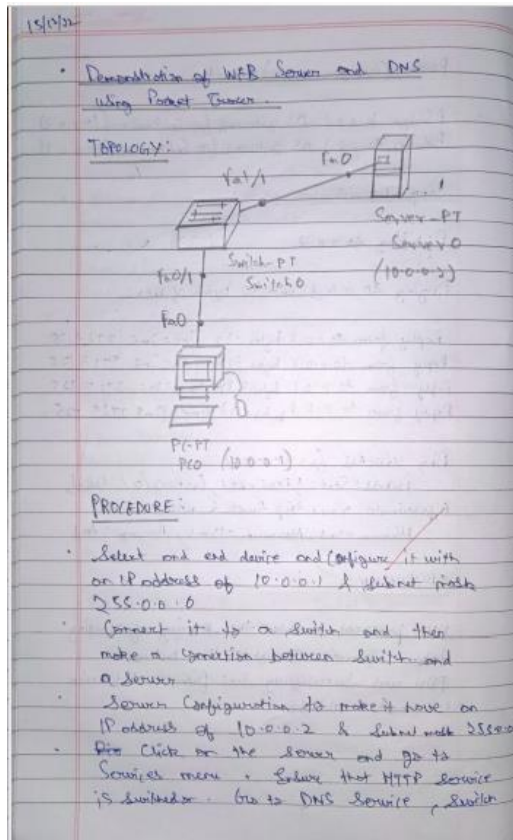 15/12/22
• Demonstration of WEB Server and DNS
using Packet Tracer.
TOPOLOGY:
Fa0
Fa1/1
Server-PT
Server0
(10.0.0.2)
Switch-PT
Switch0
Fa0/1
Fa0
PC-PT
PC0 (10.0.0.1)
PROCEDURE:
• Select and end device and Configure it with
an IP address of 10.0.0.1 & Subnet mask
255.0.0.0
• Connect it to a switch and, then
make a connection between switch and
a server
• Server Configuration to make it have an
IP address of 10.0.0.2 & Subnet mask 255.0.0
• Click on the server and go to
Services menu. Ensure that HTTP service
is switched on. Go to DNS Service, switch